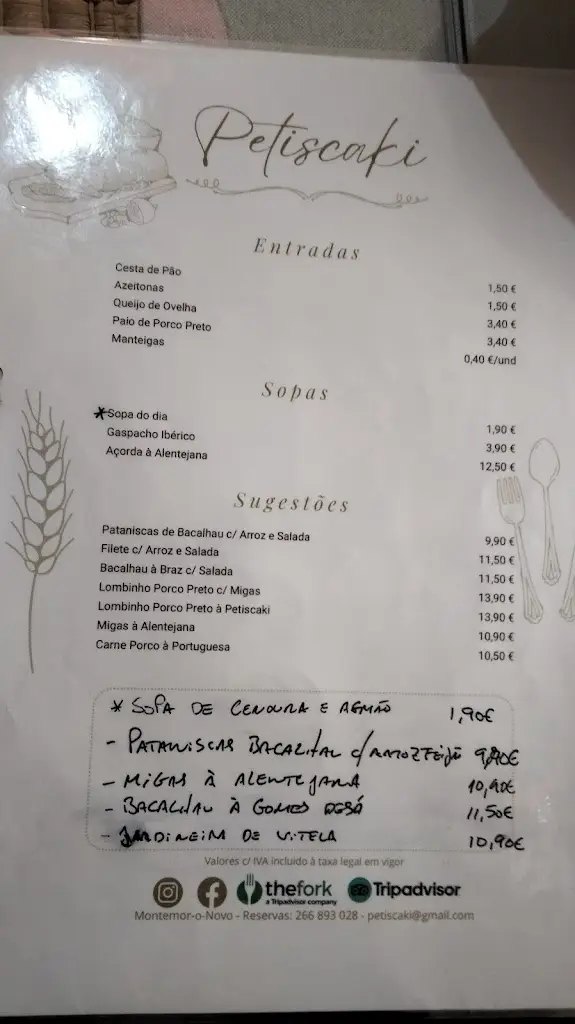 Petiscaki
Entradas
Cesta de Pão 1,50 €
Azeitonas 1,50 €
Queijo de Ovelha 3,40 €
Paio de Porco Preto 3,40 €
Manteigas 0,40 €/und
Sopas
*Sopa do dia 1,90 €
Gaspacho Ibérico 3,90 €
Açorda à Alentejana 12,50 €
Sugestões
Pataniscas de Bacalhau c/ Arroz e Salada 9,90 €
Filete c/ Arroz e Salada 11,50 €
Bacalhau à Braz c/ Salada 11,50 €
Lombinho Porco Preto c/ Migas 13,90 €
Lombinho Porco Preto à Petiscaki 13,90 €
Migas à Alentejana 10,90 €
Carne Porco à Portuguesa 10,50 €
* SOPA DE CENOURA E AGRIÃO 1,90€
- PATANISCAS BACALHAU C/ARROZ FEIJÃO 9,90€
- MIGAS À ALENTEJANA 10,90€
- BACALHAU À GOMES DE SÁ 11,50€
- JARDINEIRA DE VITELA 10,90€
Valores c/ IVA incluido à taxa legal em vigor
thefork
a Tripadvisor company
Tripadvisor
Montemor-o-Novo - Reservas: 266 893 028 - petiscaki@gmail.com